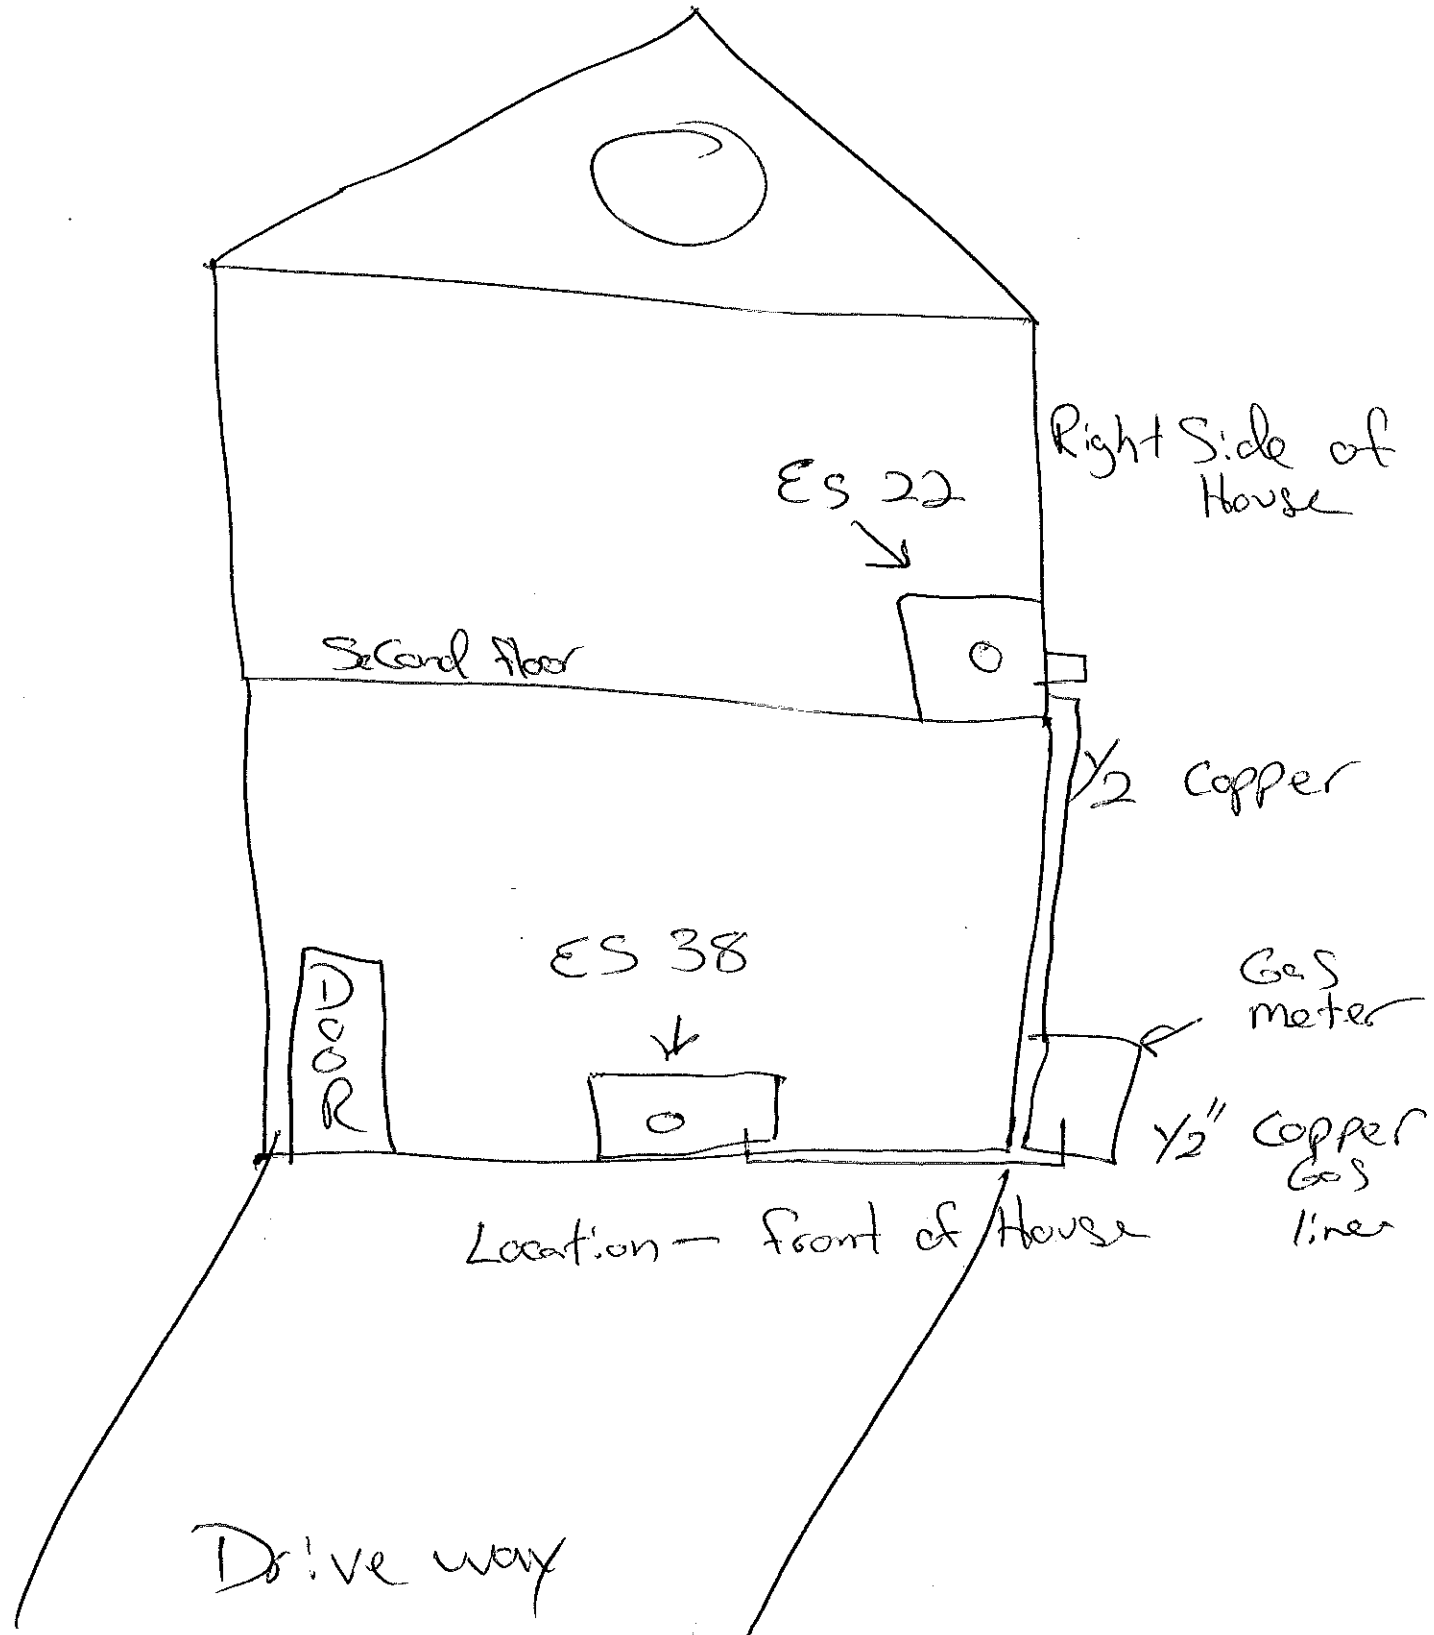 Right Side of
House
Es 22
Second floor
1/2 Copper
ES 38
Gas
meter
DOOR
1/2" Copper
Gas
line
Location - front of House
Drive way